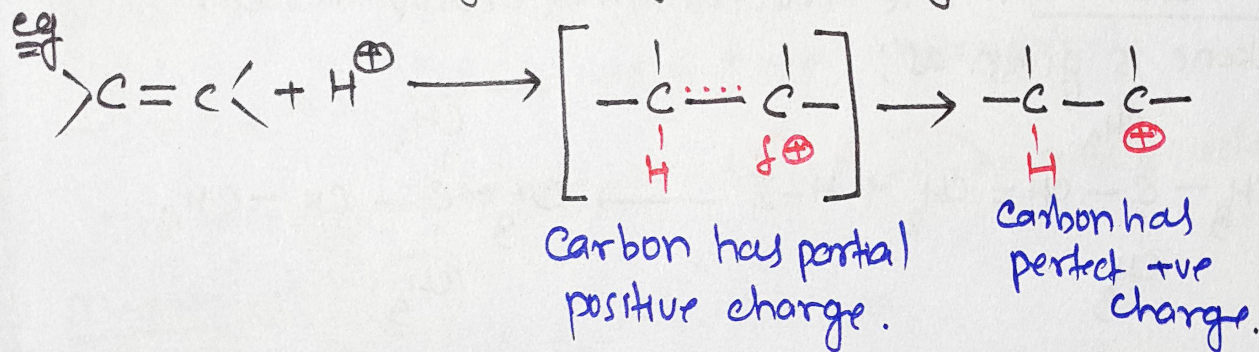 eg
>C=C< + H⊕ ⟶ [ –C⋯–C– ] ⟶ –C–C–
H δ⊕ H ⊕
Carbon has partial
positive charge.
Carbon has
perfect +ve
charge.